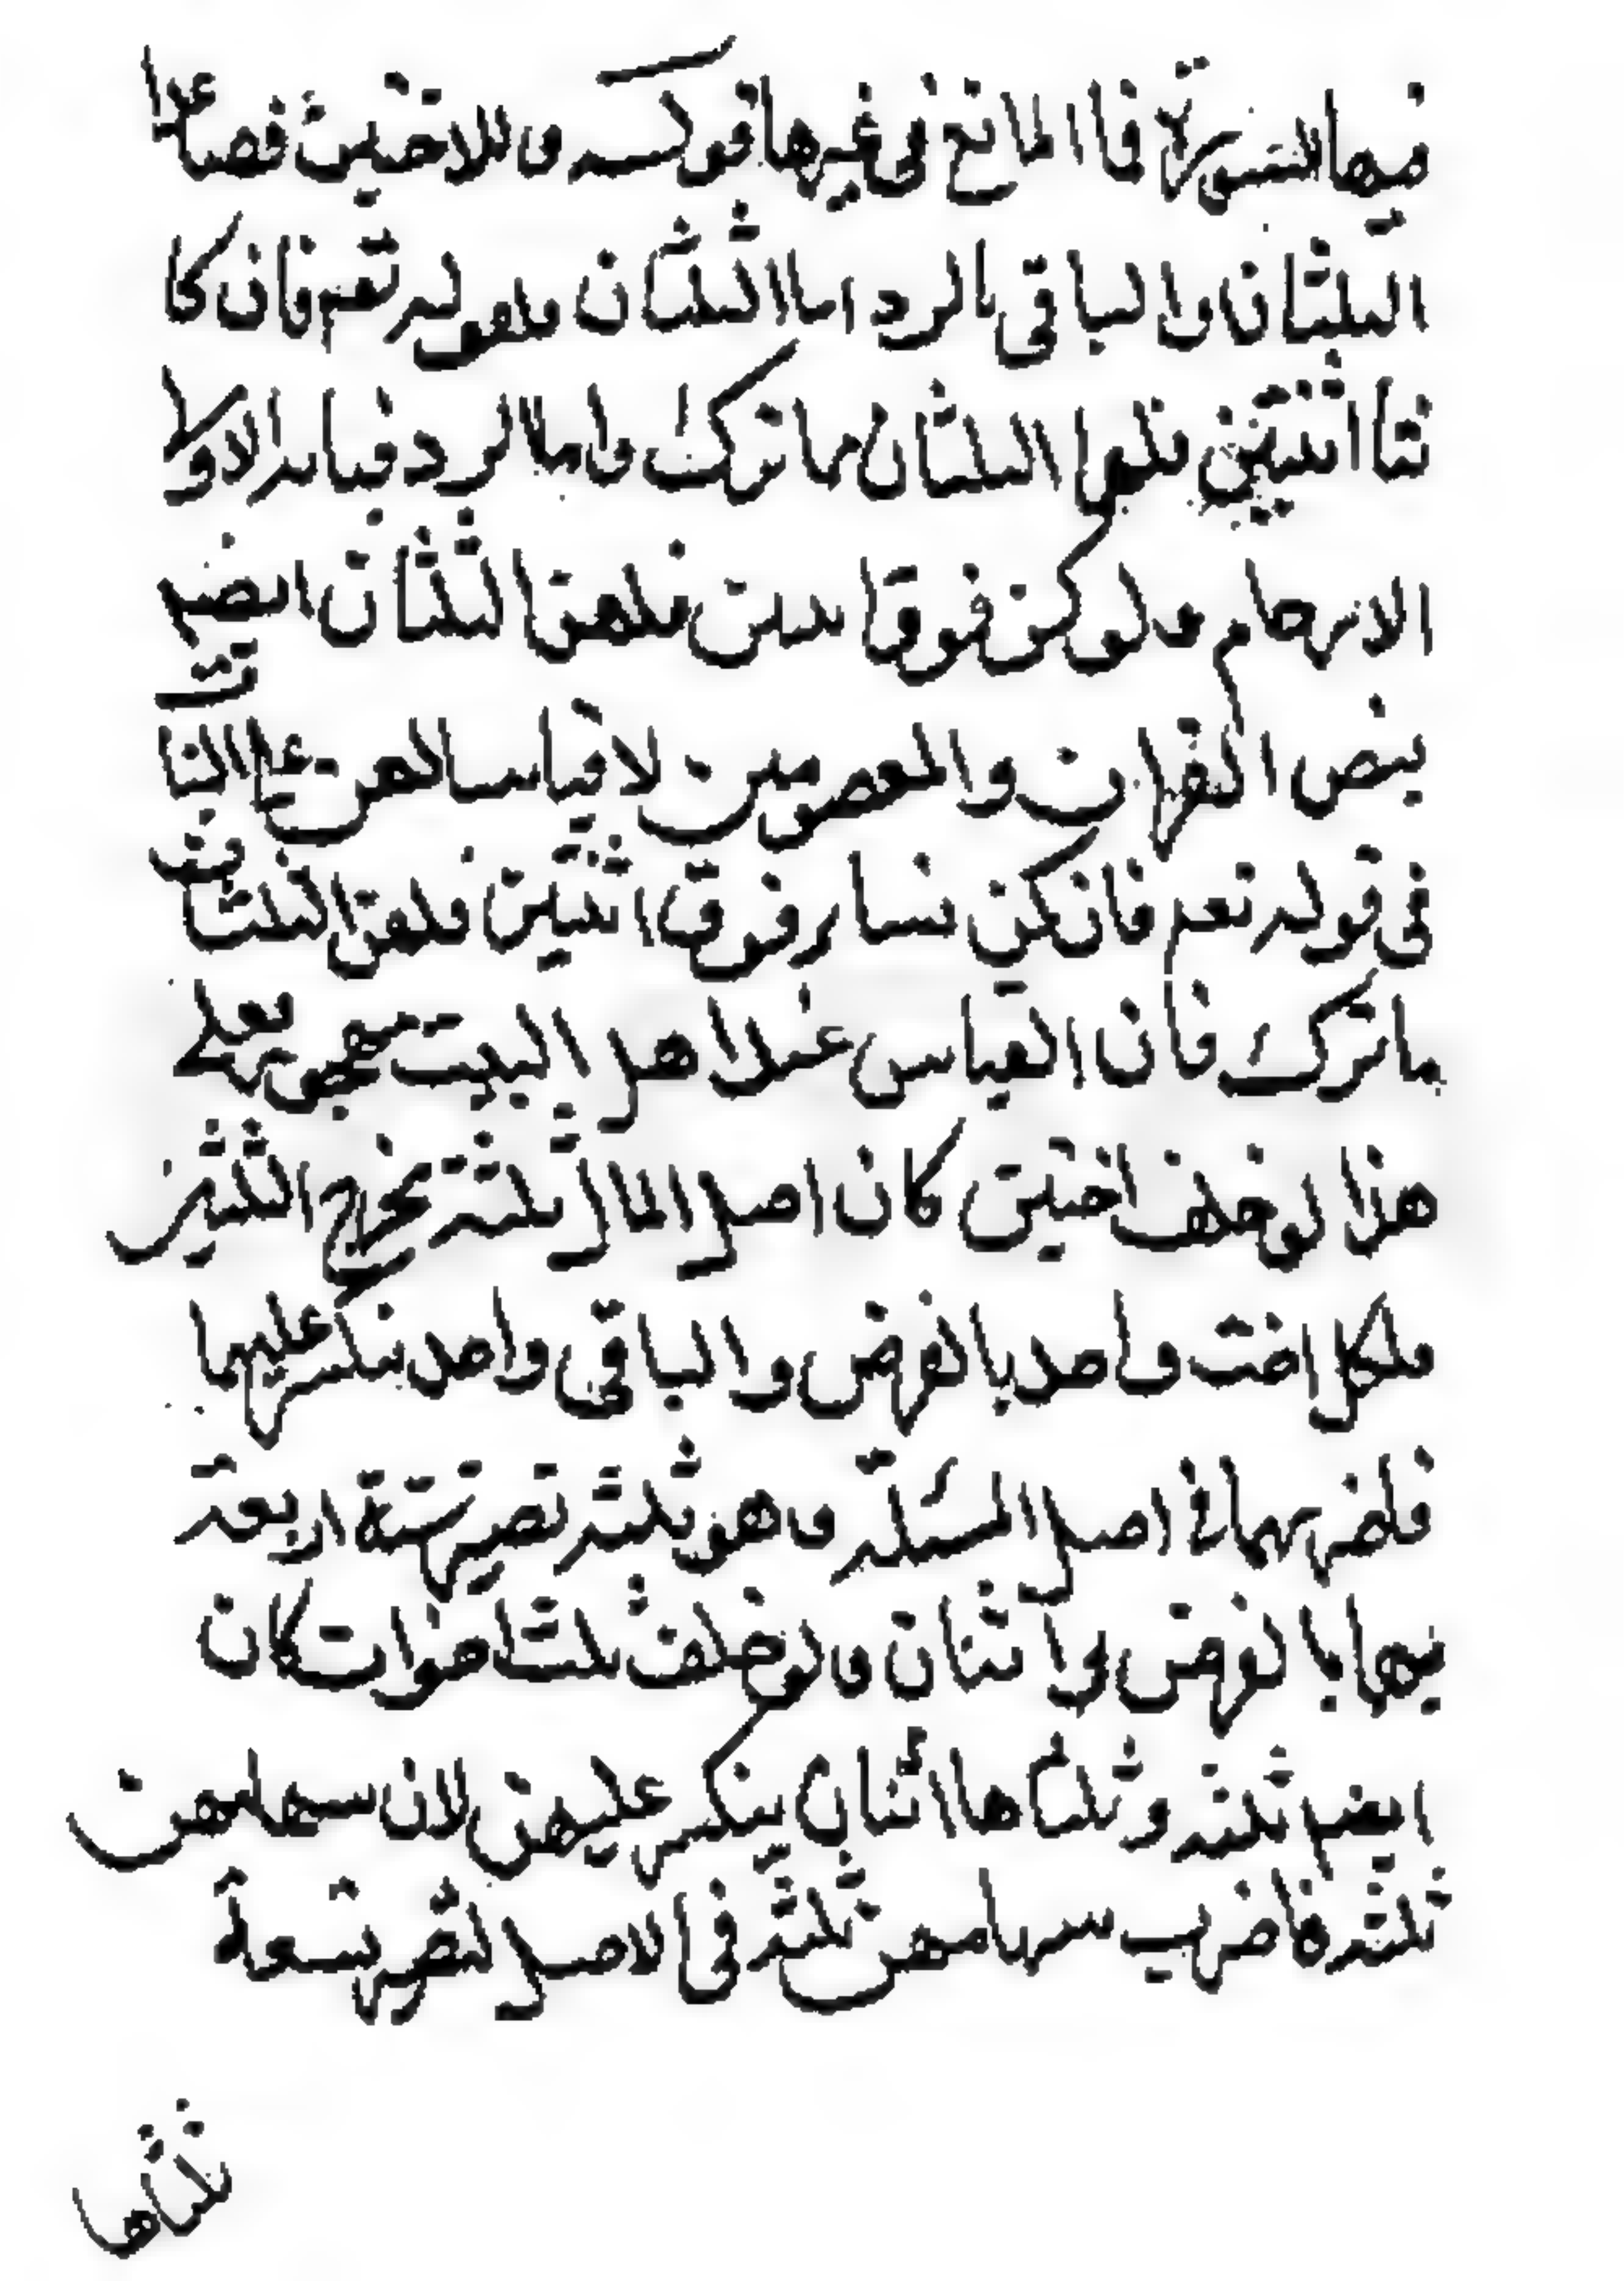 فيها التسوية فا المانع في غيرها قوله وللاختين فصاعدا
الثلثان والباقي بالرد اما الثلثان فلقوله تعم فان كا
نتا اثنتين فلهما الثلثان مما ترك واما الرد فباية الاولا
الارحام ولو كن فوق اثنتين فلهن الثلثان ايضم
بنص القران والمعصومين لا قياسا لهن على البنات
في قوله تعم فان كن نساء فوق اثنتين فلهن الثلثان
ما ترك فان القياس عند اهل البيت مهجور فعلى
هذا لو خلف اختين كان اصل المال ثلثة مخرج الثلثين
فلكل اخت واحد بالفرض والباقي واحد ينكسر عليهما
فلضربهما في اصل المسئلة وهو ثلثة تصير ستة اربعة
بينهما بالفرض اثنان ولو خلف ثلث اخوات كان
ايضم ثلثة وثلثاها اثنان ينكسر عليهن لان سهامهن
ثلثة فاضرب سهامهن ثلثة في الاصل لتصير تسعة
ثلثاها